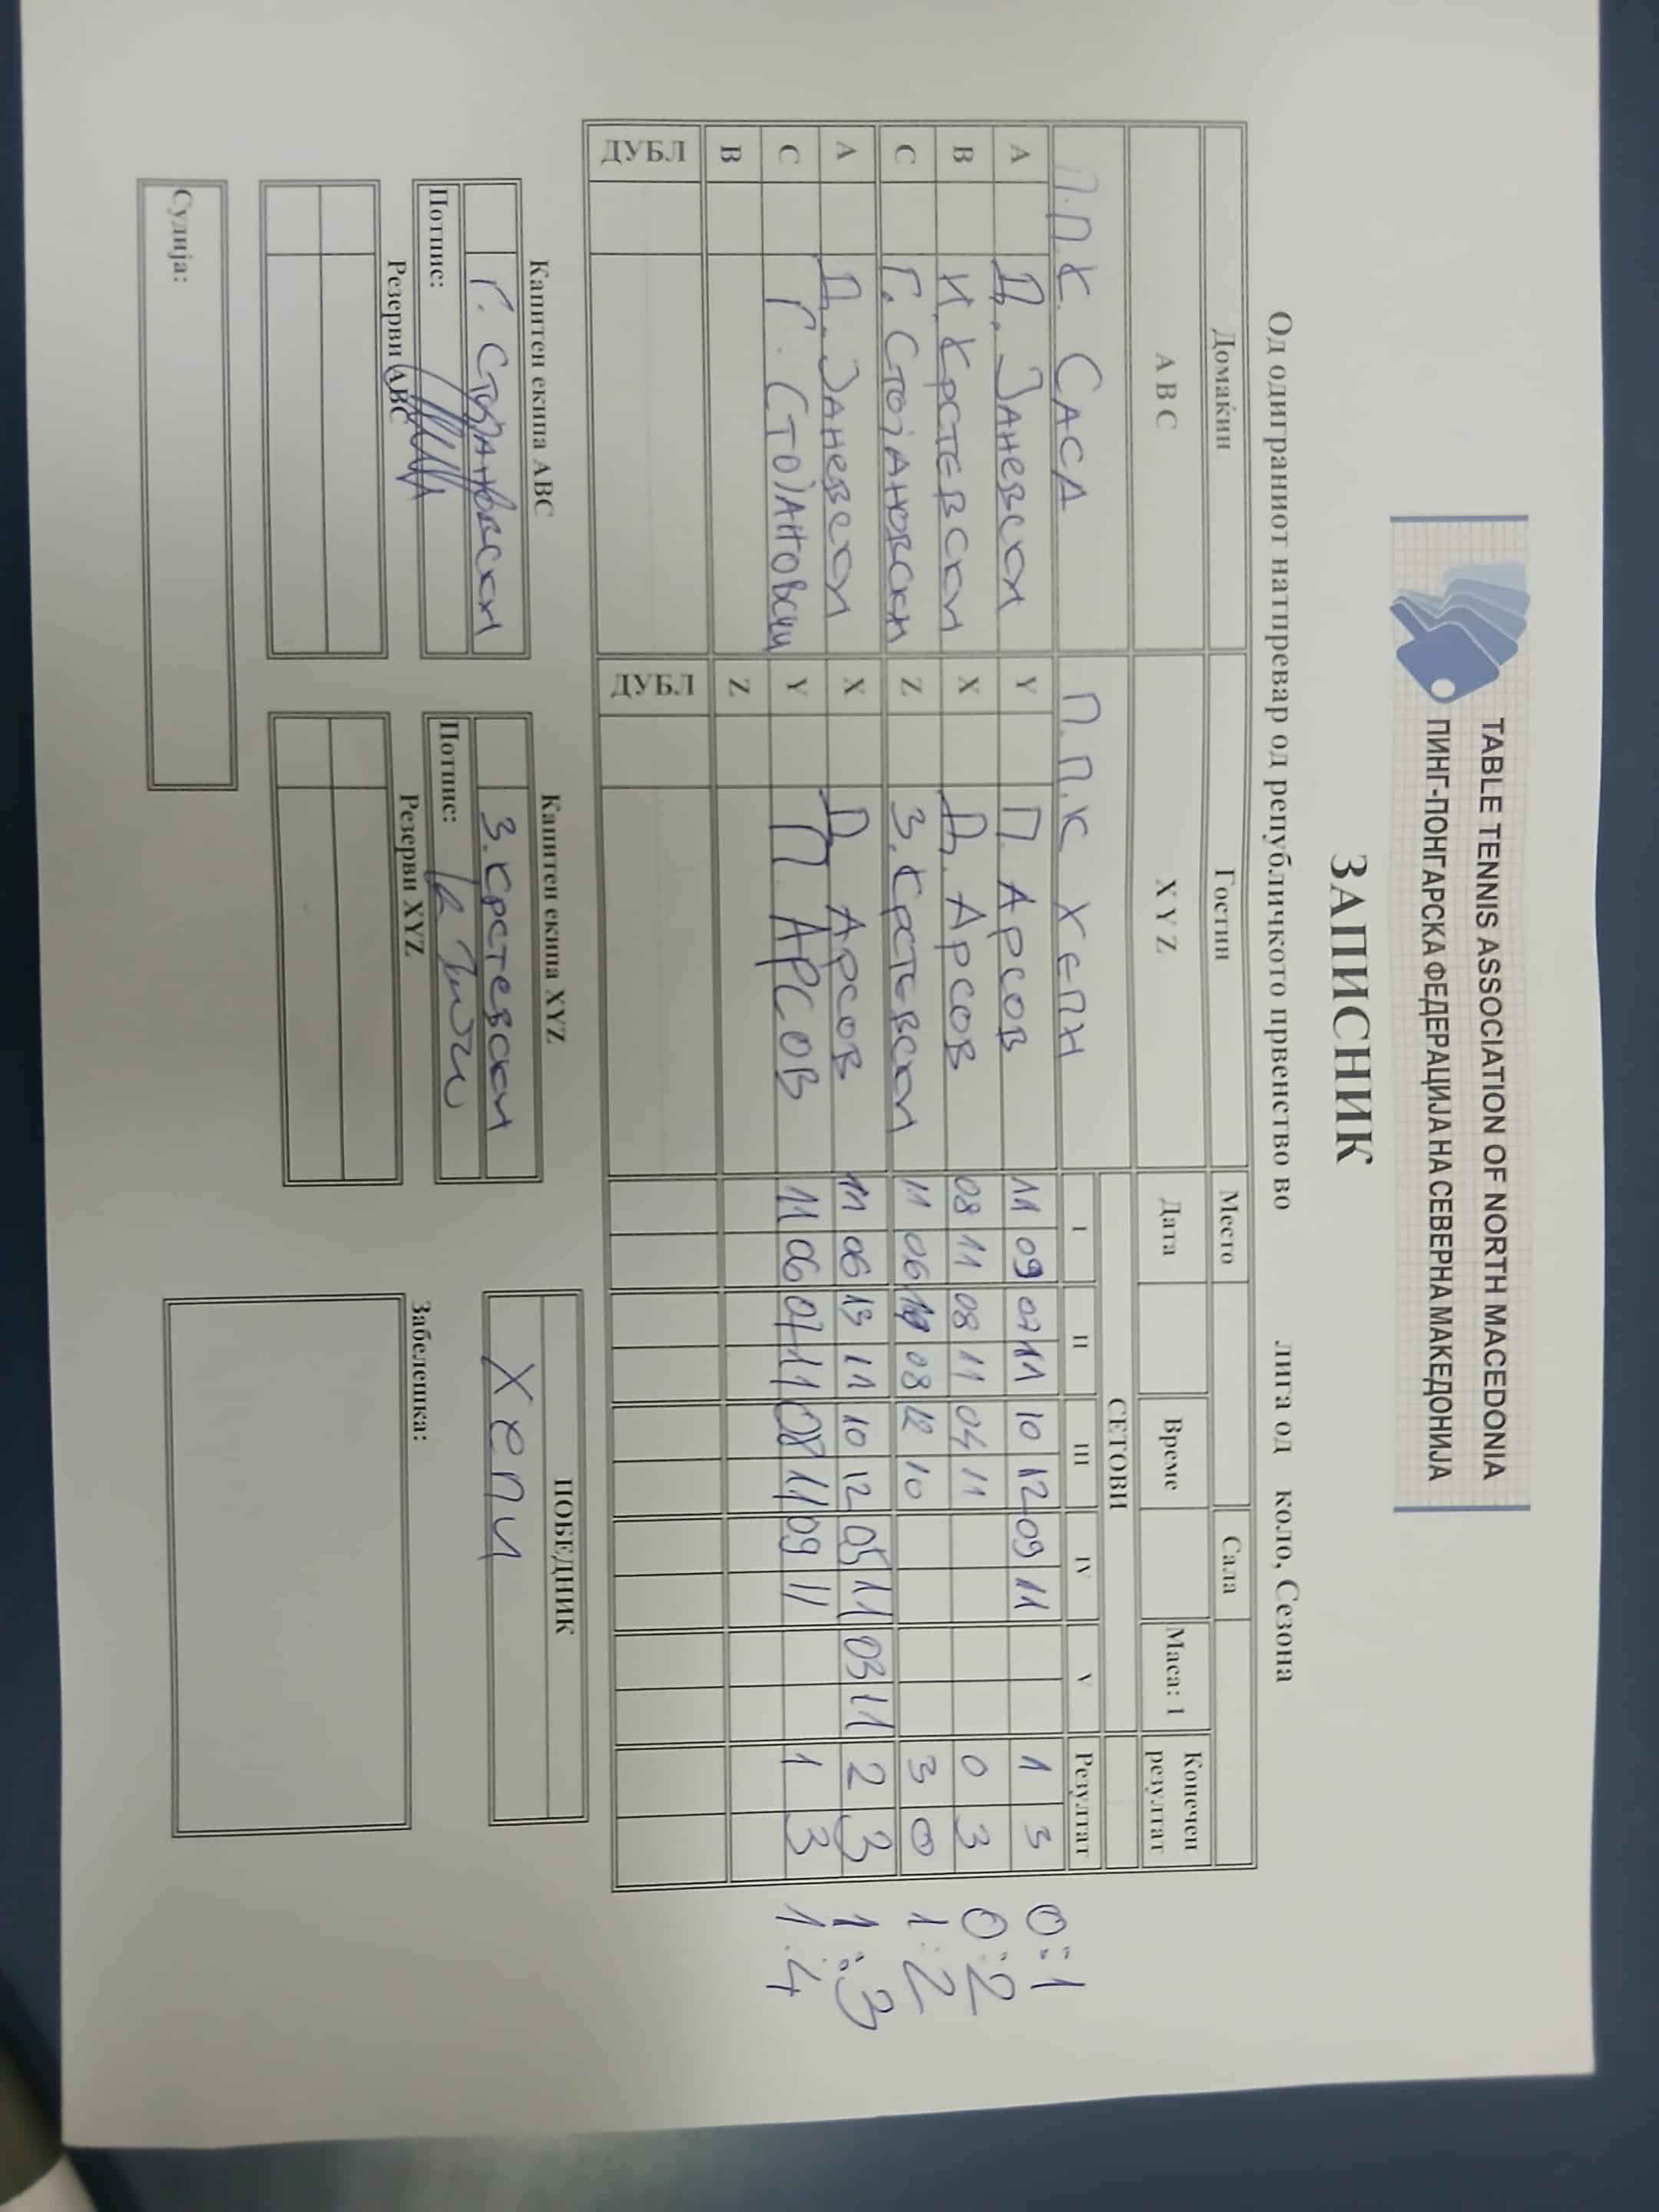 TABLE TENNIS ASSOCIATION OF NORTH MACEDONIA
ПИНГ-ПОНГАРСКА ФЕДЕРАЦИЈА НА СЕВЕРНА МАКЕДОНИЈА
ЗАПИСНИК
Од одиграниот натпревар од републичкото првенство во лига од коло, Сезона
Домаќин Гостин Место Сала
A B C X Y Z Дата Време Маса: 1 Конечен резултат
П.П.К. САСА П.П.К ХЕПИ СЕТОВИ
I II III IV V Резултат
A Д. Заневски Y П. Арсов 11 09 07 11 10 12 09 11 1 3 0:1
B И. Крстевски X Д. Арсов 08 11 08 11 04 11 0 3 0:2
C Г. Стојановски Z З. Крстевски 11 06 08 12 10 3 0 1:2
A Д. Заневски X Д Арсов 11 06 13 11 10 12 05 11 03 11 2 3 1:3
C Г. Стојановски Y П. Арсов 11 06 07 11 08 11 09 11 1 3 1:4
B Z
ДУБЛ ДУБЛ
Капитен екипа ABC Капитен екипа XYZ ПОБЕДНИК
Г. Стојановски З. Крстевски Хепи
Потпис: Потпис:
Резерви ABC Резерви XYZ Забелешка:
Судија: